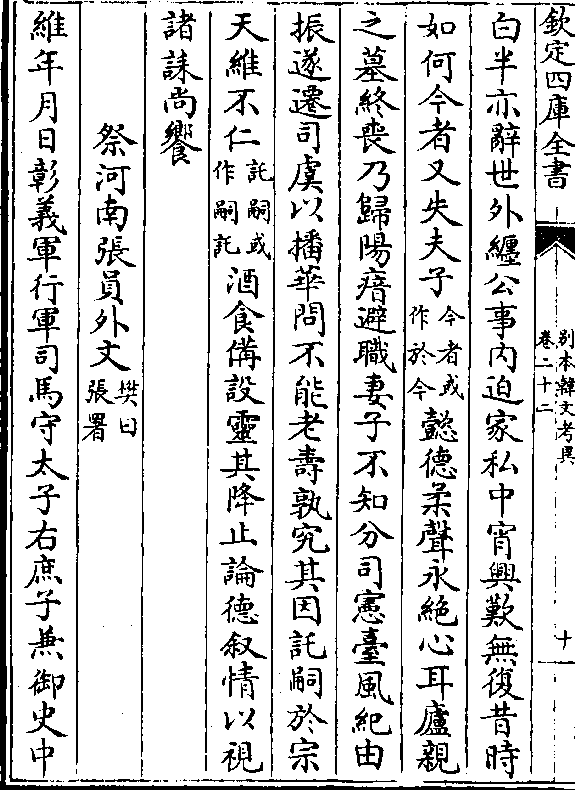 欽定四庫全書
別本韓文考異
卷二十二
十
白半亦辭世外纏公事内迫家私中宵興歎無復昔時
如何今者又失夫子今者或作於今懿德柔聲永絶心耳廬親
之墓終喪乃歸陽瘖避職妻子不知分司憲臺風紀由
振遂遷司虞以播華問不能老壽孰究其因託嗣於宗
天維不仁託嗣或作嗣託酒食備設靈其降止論德叙情以視
諸誄尚饗
祭河南張員外文樊曰張署
維年月日彰義軍行軍司馬守太子右庶子兼御史中